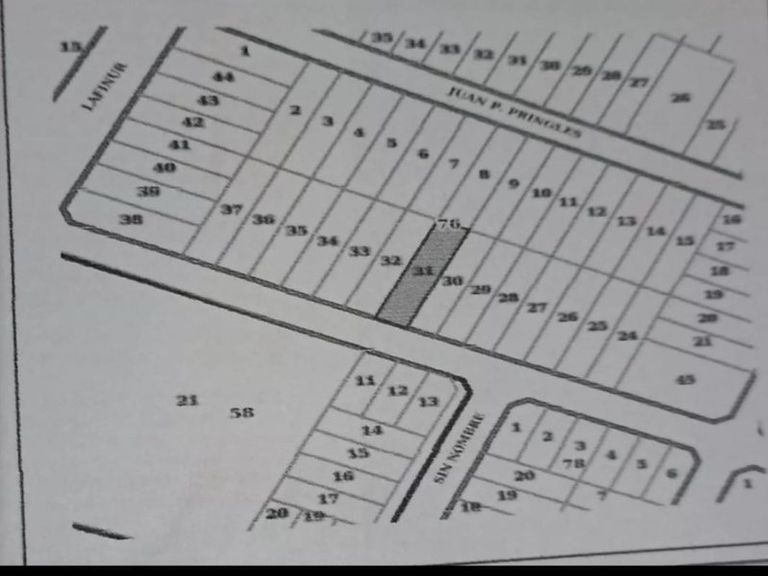 15
LAFINUR
35 34 33 32 31 30 29 28 27 26 25
JUAN P. PRINGLES
1
44
43
42
41
40
39
38
2 3 4 5 6 7 8 9 10 11 12 13 14 15
16
17
18
19
20
21
45
76
37 36 35 34 33 32 31 30 29 28 27 26 25 24
21 58
11 12 13
14
15
16
17
20 19
SIN NOMBRE
1 2 3 4 5 6
78
20
19
18
7
1